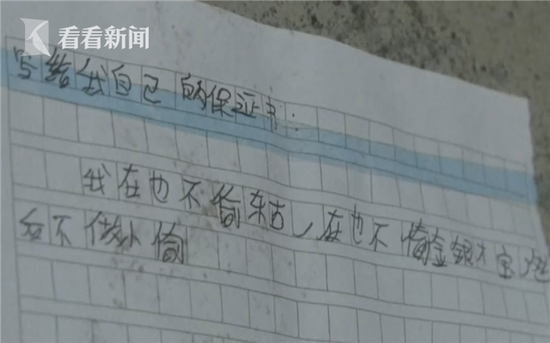 看看新闻
写给我自己的保证书:
我在也不偷东西,在也不偷金银才宝
不做小偷